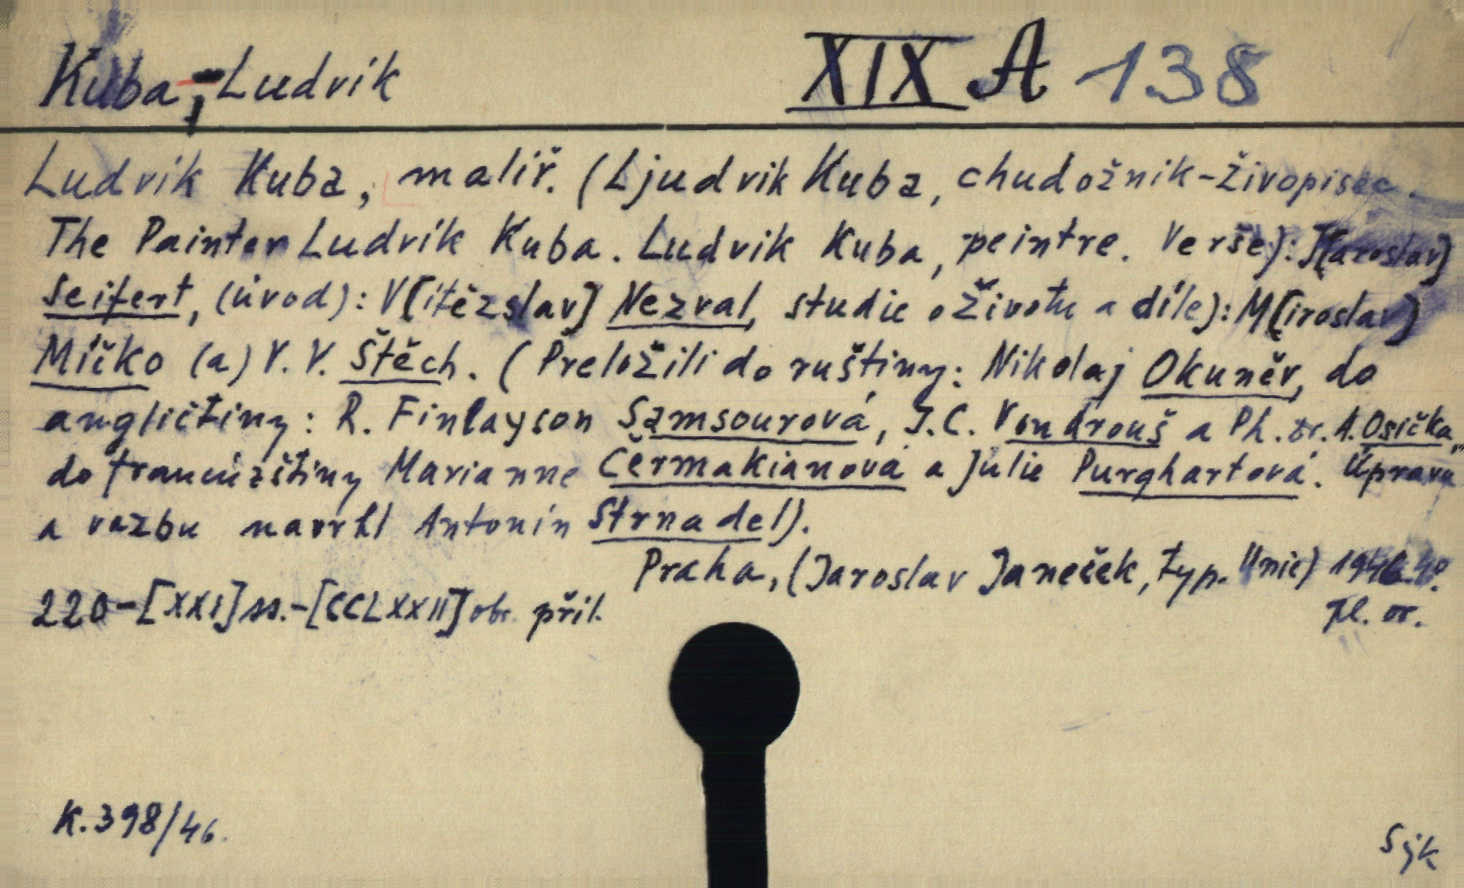 Kuba, Ludvík XIX A 138
Ludvík Kuba, malíř. (Ljudvik Kuba, chudožnik-živopisec.
The Painter Ludvík Kuba. Ludvík Kuba, peintre. Verše): J[aroslav]
Seifert, (úvod): V[ítězslav] Nezval, studie o životu a díle): M[iroslav]
Míčko (a) V. V. Štěch. (Preložili do ruštiny: Nikolaj Okuněv, do
angličtiny: R. Finlayson Samsourová, J.C. Vondrouš a Ph. Dr. A. Osička,
do francúzštiny Marianne Čermakianová a Julie Purghartová. Úpravu
a vazbu navrhl Antonín Strnadel).
Praha, (Jaroslav Janeček, typ. Unie) 1946. 4º.
220-[XXI] ss.-[CCLXXII] obr. příl. Pl. or.
K. 398/46.
Sýk